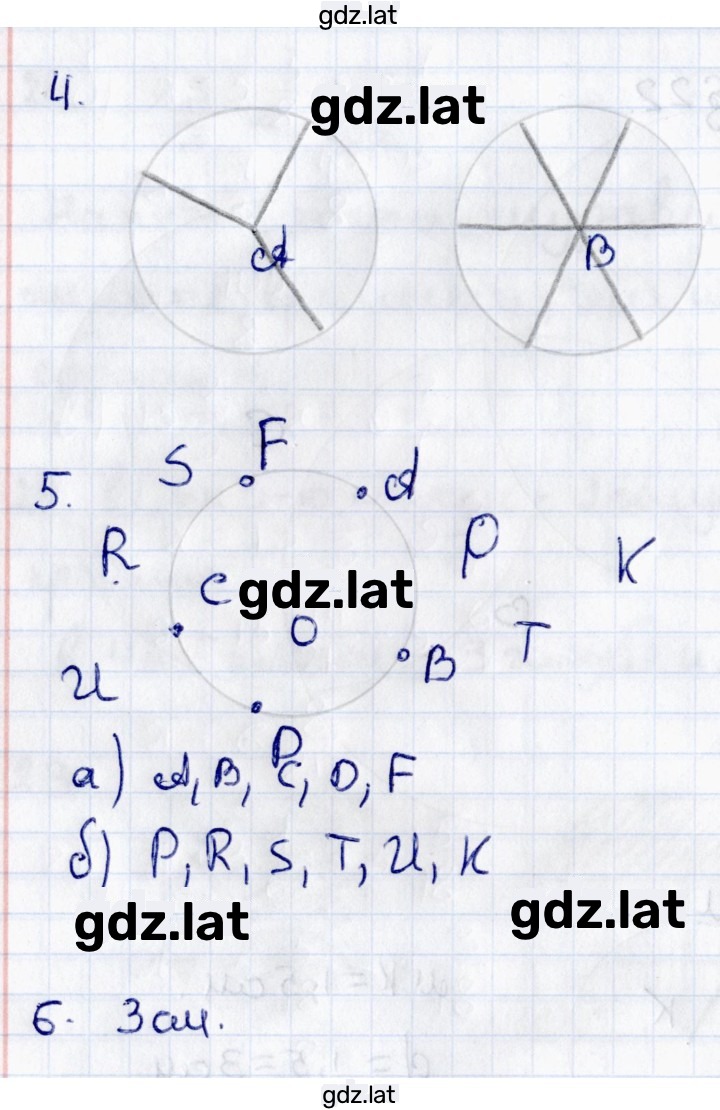 gdz.lat
4.
gdz.lat
A
B
5.
S F A
R P K
C gdz.lat
O T
B
И
D
а) A, B, C, D, F
б) P, R, S, T, И, K
gdz.lat gdz.lat
6. 3 см.
gdz.lat